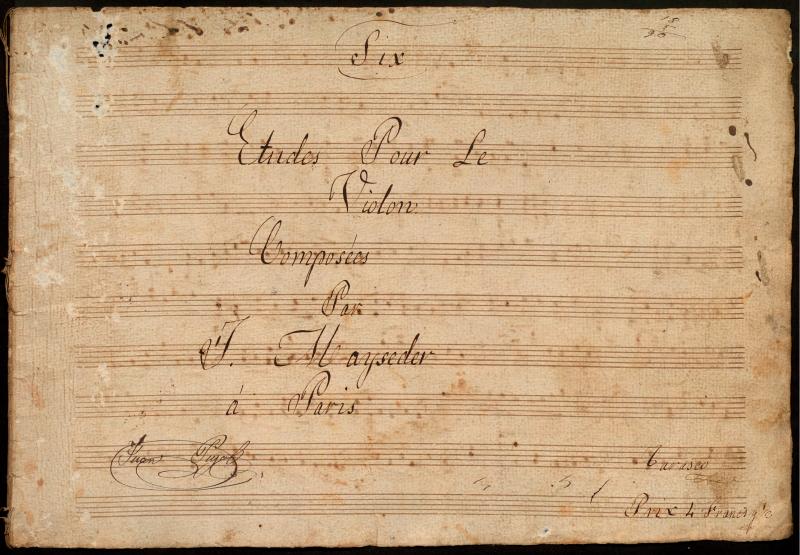 Six
Etudes Pour Le
Violon
Composées
Par
J. Mayseder
á Paris
Juan Pujol
Prix 4 Francs